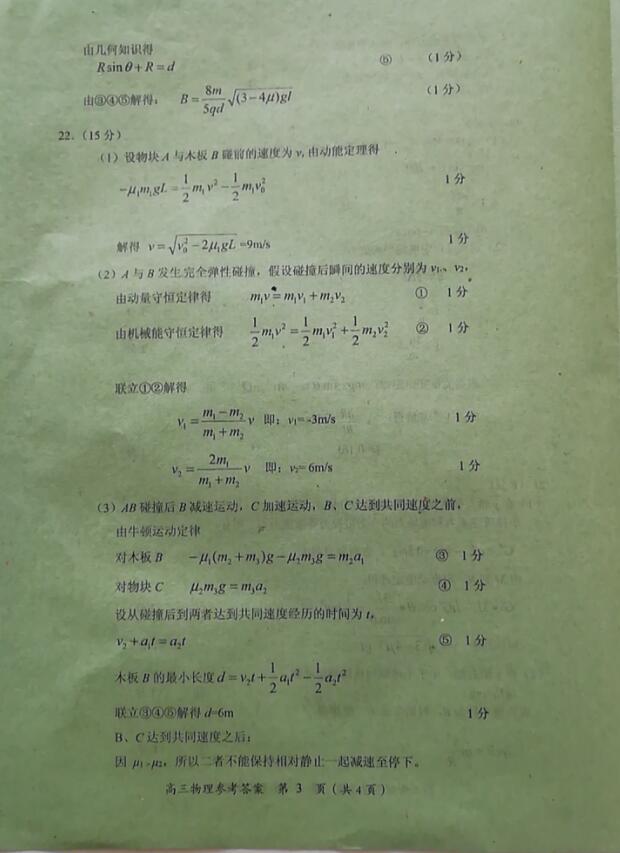 由几何知识得
Rsinθ+R=d ⑤ （1分）
由③④⑤解得： B=\frac{8m}{5qd}\sqrt{(3-4μ)gl} （1分）
22.（15分）
（1）设物块A与木板B碰前的速度为v,由动能定理得
-μ₁m₁gL=\frac{1}{2}m₁v²-\frac{1}{2}m₁v₀² 1分
解得 v=\sqrt{v₀²-2μ₁gL}=9m/s 1分
（2）A与B发生完全弹性碰撞，假设碰撞后瞬间的速度分别为v₁、v₂，
由动量守恒定律得 m₁v=m₁v₁+m₂v₂ ① 1分
由机械能守恒定律得 \frac{1}{2}m₁v²=\frac{1}{2}m₁v₁²+\frac{1}{2}m₂v₂² ② 1分
联立①②解得
v₁=\frac{m₁-m₂}{m₁+m₂}v 即：v₁=-3m/s 1分
v₂=\frac{2m₁}{m₁+m₂}v 即：v₂=6m/s 1分
（3）AB碰撞后B减速运动，C加速运动，B、C达到共同速度之前，
由牛顿运动定律
对木板B -μ₁(m₂+m₃)g-μ₂m₃g=m₂a₁ ③ 1分
对物块C μ₂m₃g=m₃a₂ ④ 1分
设从碰撞后到两者达到共同速度经历的时间为t，
v₂+a₁t=a₂t ⑤ 1分
木板B的最小长度d=v₂t+\frac{1}{2}a₁t²-\frac{1}{2}a₂t²
联立③④⑤解得d=6m 1分
B、C达到共同速度之后：
因 μ₁>μ₂，所以二者不能保持相对静止一起减速至停下。
高三物理参考答案 第 3 页（共4页）